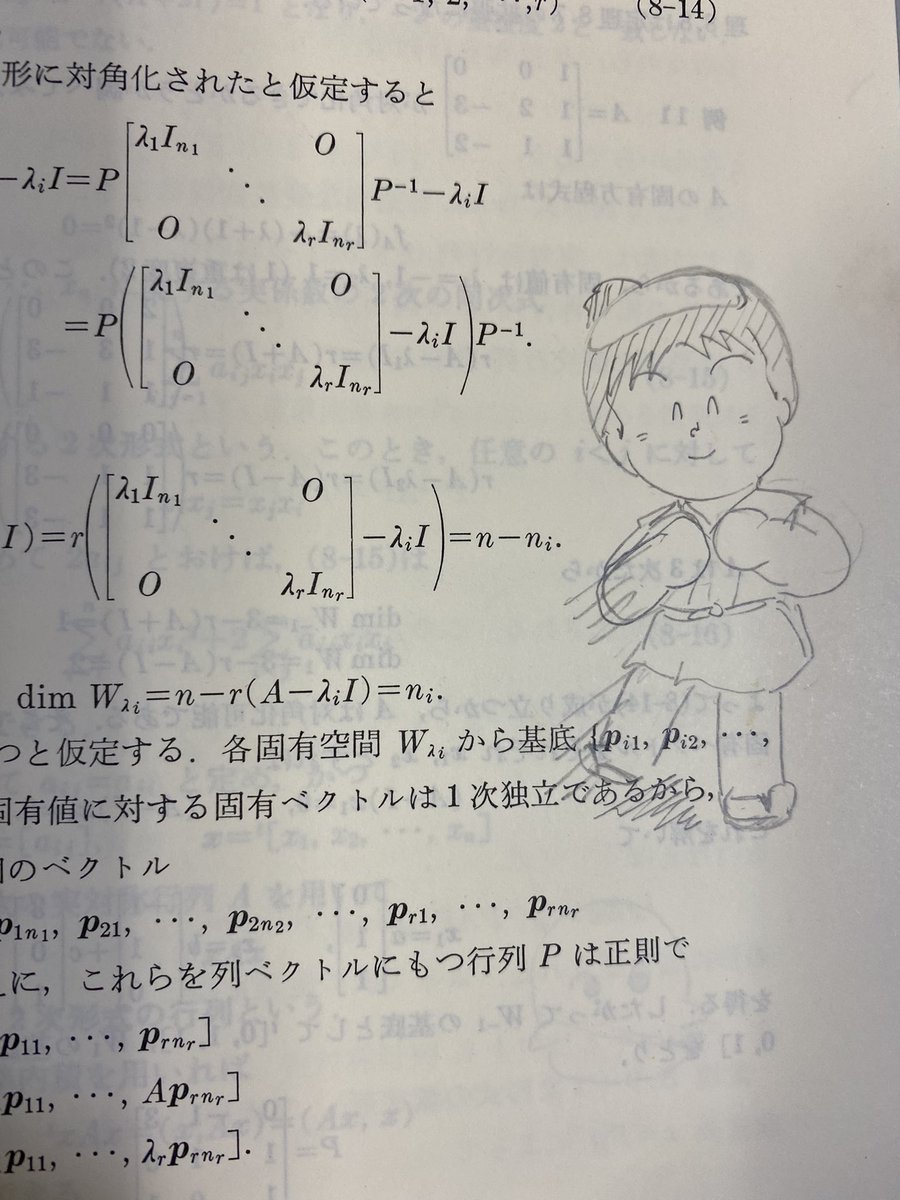 1, 2, ⋯, r) (8-14)
形に対角化されたと仮定すると
−λᵢI=P[λ₁Iₙ₁ O ⋱ O λᵣIₙᵣ]P⁻¹−λᵢI
=P([λ₁Iₙ₁ O ⋱ O λᵣIₙᵣ]−λᵢI)P⁻¹.
I)=r([λ₁Iₙ₁ O ⋱ O λᵣIₙᵣ]−λᵢI)=n−nᵢ.
dim W_{λᵢ}=n−r(A−λᵢI)=nᵢ.
つと仮定する.各固有空間 W_{λᵢ} から基底 {p_{i1}, p_{i2}, ⋯,
固有値に対する固有ベクトルは1次独立であるから,
のベクトル
p_{1n₁}, p_{21}, ⋯, p_{2n₂}, ⋯, p_{r1}, ⋯, p_{rnᵣ}
に,これらを列ベクトルにもつ行列 P は正則で
p_{11}, ⋯, p_{rnᵣ}]
p_{11}, ⋯, Ap_{rnᵣ}]
p_{11}, ⋯, λᵣp_{rnᵣ}].